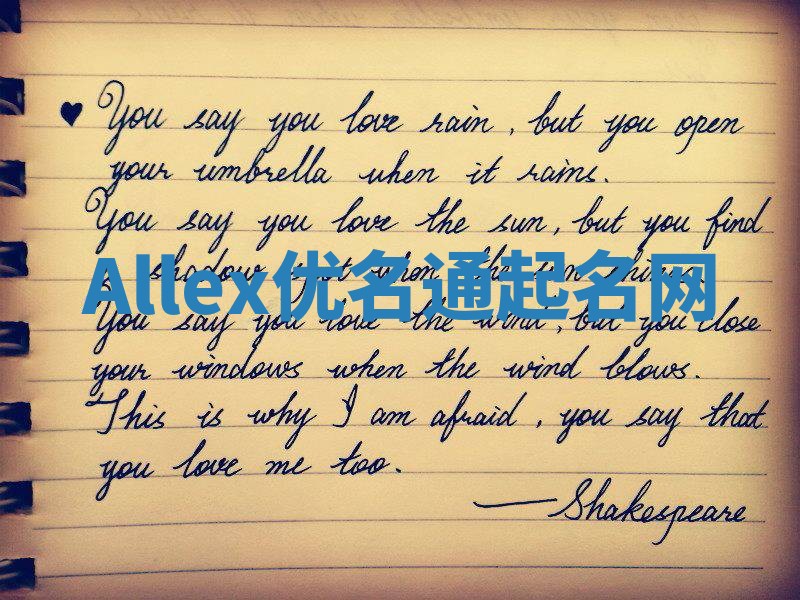 You say you love rain, but you open
your umbrella when it rains.
You say you love the sun, but you find
a shadow spot when the sun shines.
Allex优名通起名网
You say you love the wind, but you close
your windows when the wind blows.
This is why I am afraid, you say that
you love me too.
—Shakespeare